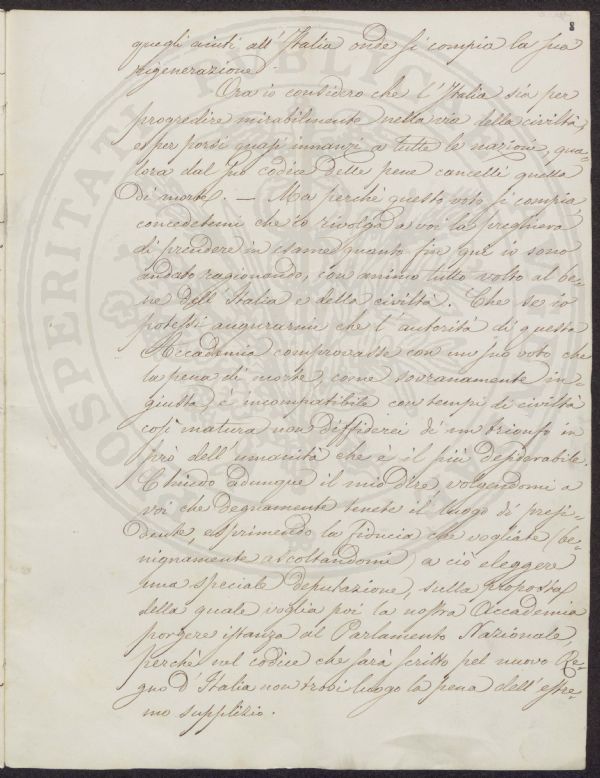 8
quegli aiuti all'Italia onde si compia la sua
rigenerazione.
Ora io considero che l'Italia sia per
progredire mirabilmente nella via della civiltà,
e per porsi quasi innanzi a tutte le nazioni, qua-
lora dal suo codice delle pene cancelli quella
di morte. — Ma perchè questo voto si compia,
concedetemi che io rivolga a voi la preghiera
di prendere in esame quanto fin qui io sono
andato ragionando, con animo tutto volto al be-
ne dell'Italia e della civiltà. Che se io
potessi augurarmi che l'autorità di questa
Accademia comprovasse con un suo voto che
la pena di morte, come sovranamente in-
giusta, è incompatibile con tempi di civiltà
così matura non diffiderei di un trionfo in
prò dell'umanità che è il più desiderabile.
Chiudo adunque il mio dire, volgendomi a
voi che degnamente tenete il luogo di presi-
dente, esprimendo la fiducia che vogliate (be-
nignamente ascoltandomi) a ciò eleggere
una speciale deputazione, sulla proposta
della quale voglia poi la nostra Accademia
porgere istanza al Parlamento Nazionale,
perchè nel codice che sarà scritto pel nuovo Re-
gno d'Italia non trovi luogo la pena dell'estre-
mo supplizio.
PROSPERITATI PUBLICAE